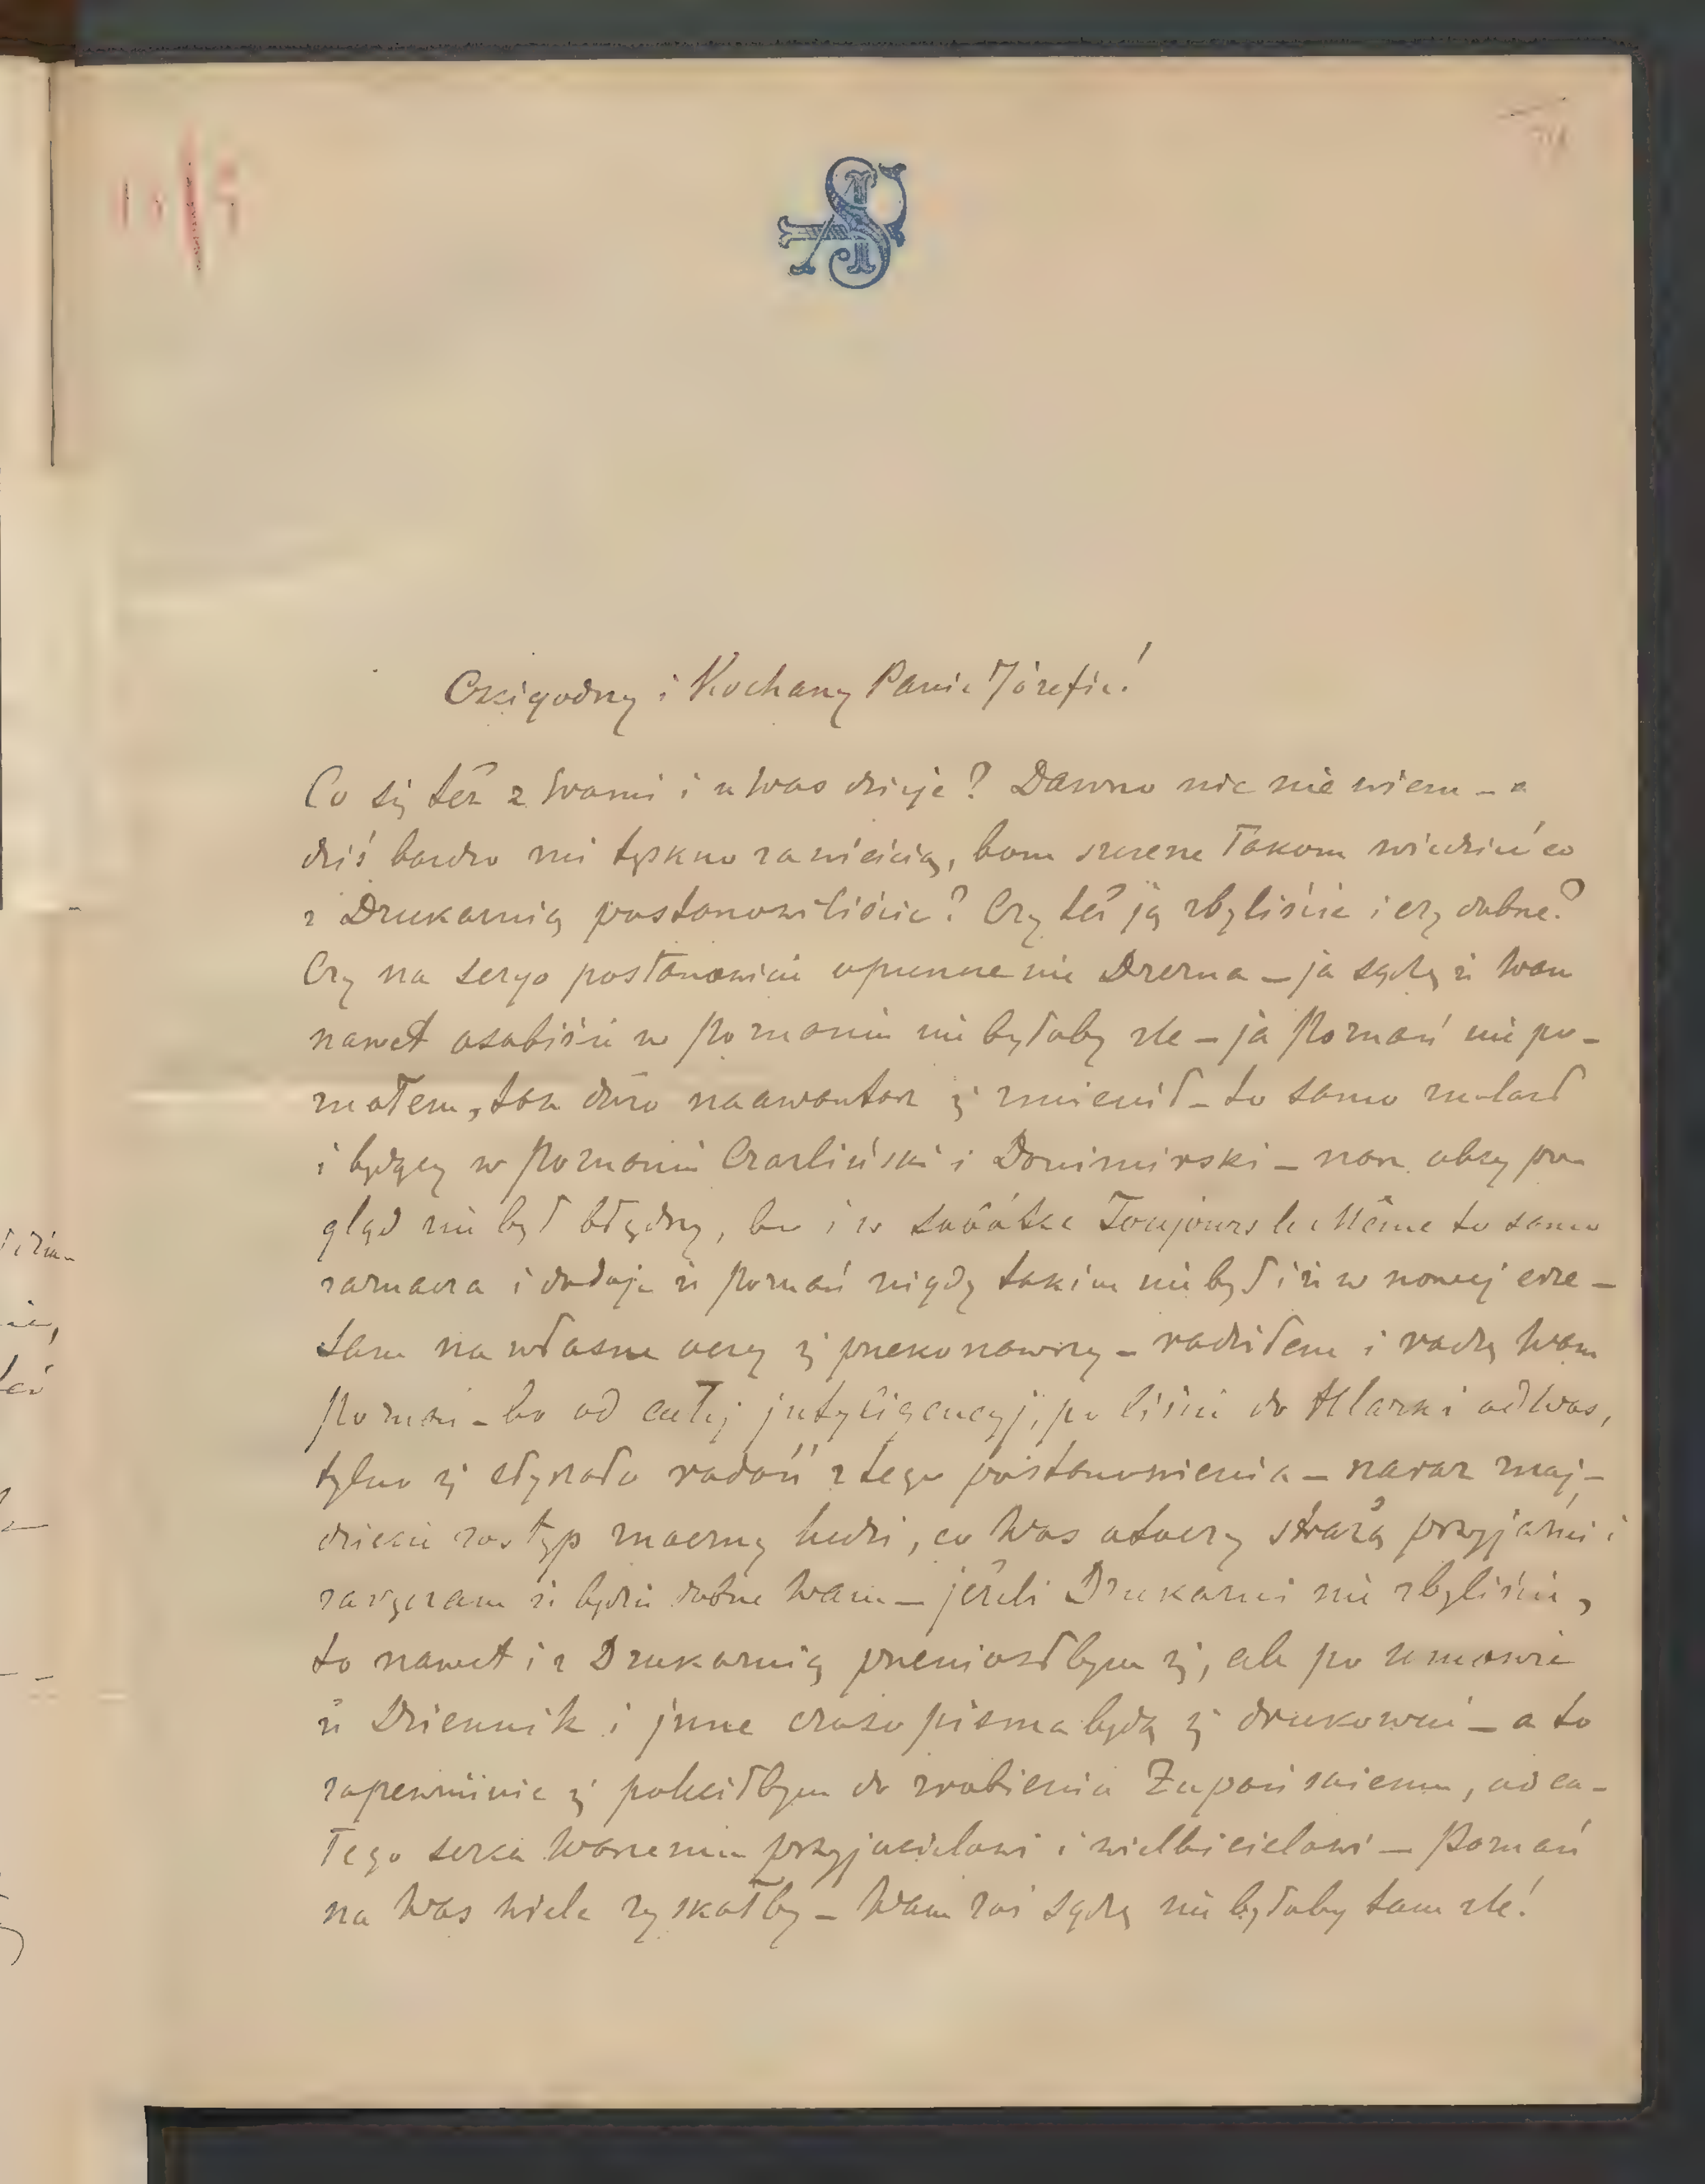 Czcigodny i Kochany Panie Józefie!
Co się też z Wami i u Was dzieje? Dawno nic nie wiem – a
dziś bardzo mi tęskno za wieścią, bom szczerze łakom wiedzieć co
z Drukarnią postanowiliście? Czy też ją zbyliście i czy dobrze?
Czy na seryo postanowicie opuszczenie Drezna – ja sądzę iż Wam
nawet osobiście w Poznaniu nie byłoby źle – ja Poznań nie po-
znałem, tak dużo na awantaż się zmienił – to samo znalazł
i będący w Poznaniu Czarliński i Donimirski – nasz obcy po-
gląd nie był błędny, bo i w Toujours le Même to samo
zaznacza i dodaje iż Poznań nigdy takim nie był i iż w nowej erze –
tam na własne oczy się przekonawszy – radziłem i radzę Wam
Poznań – bo od całej jntyligencyj, po liście do od Was,
tylko się słyszało radość z tego postanowienia – naraz znaj-
dziecie zastęp znaczny ludzi, co Was otoczy strażą przyjaźni i
zaręczam iż będzie dobrze Wam – jeżeli Drukarni nie zbyliście,
to nawet i z Drukarnią przeniosłbym się, ale po umowie
iż Dziennik i jnne czasopisma będą się drukować – a to
zapewnienie się poleciłbym do zrobienia Żupańskiemu, od ca-
łego serca Waszemu przyjacielowi i wielbicielowi – Poznań
na Was wiele zyskałby – Wam zaś sądzę nie byłoby tam źle!